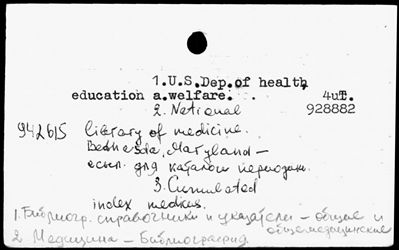 1.U.S.Dep.of health
education a.welfare. 4чТ.
2. National 928882
942615 library of medicine.
Bethesda, Maryland –
ссыл. для каталога периодич.
3. Cumulated
index medicus.
1. Библиогр. справочники и указатели – общие и
общемедицинские
2 Медицина – Библиография